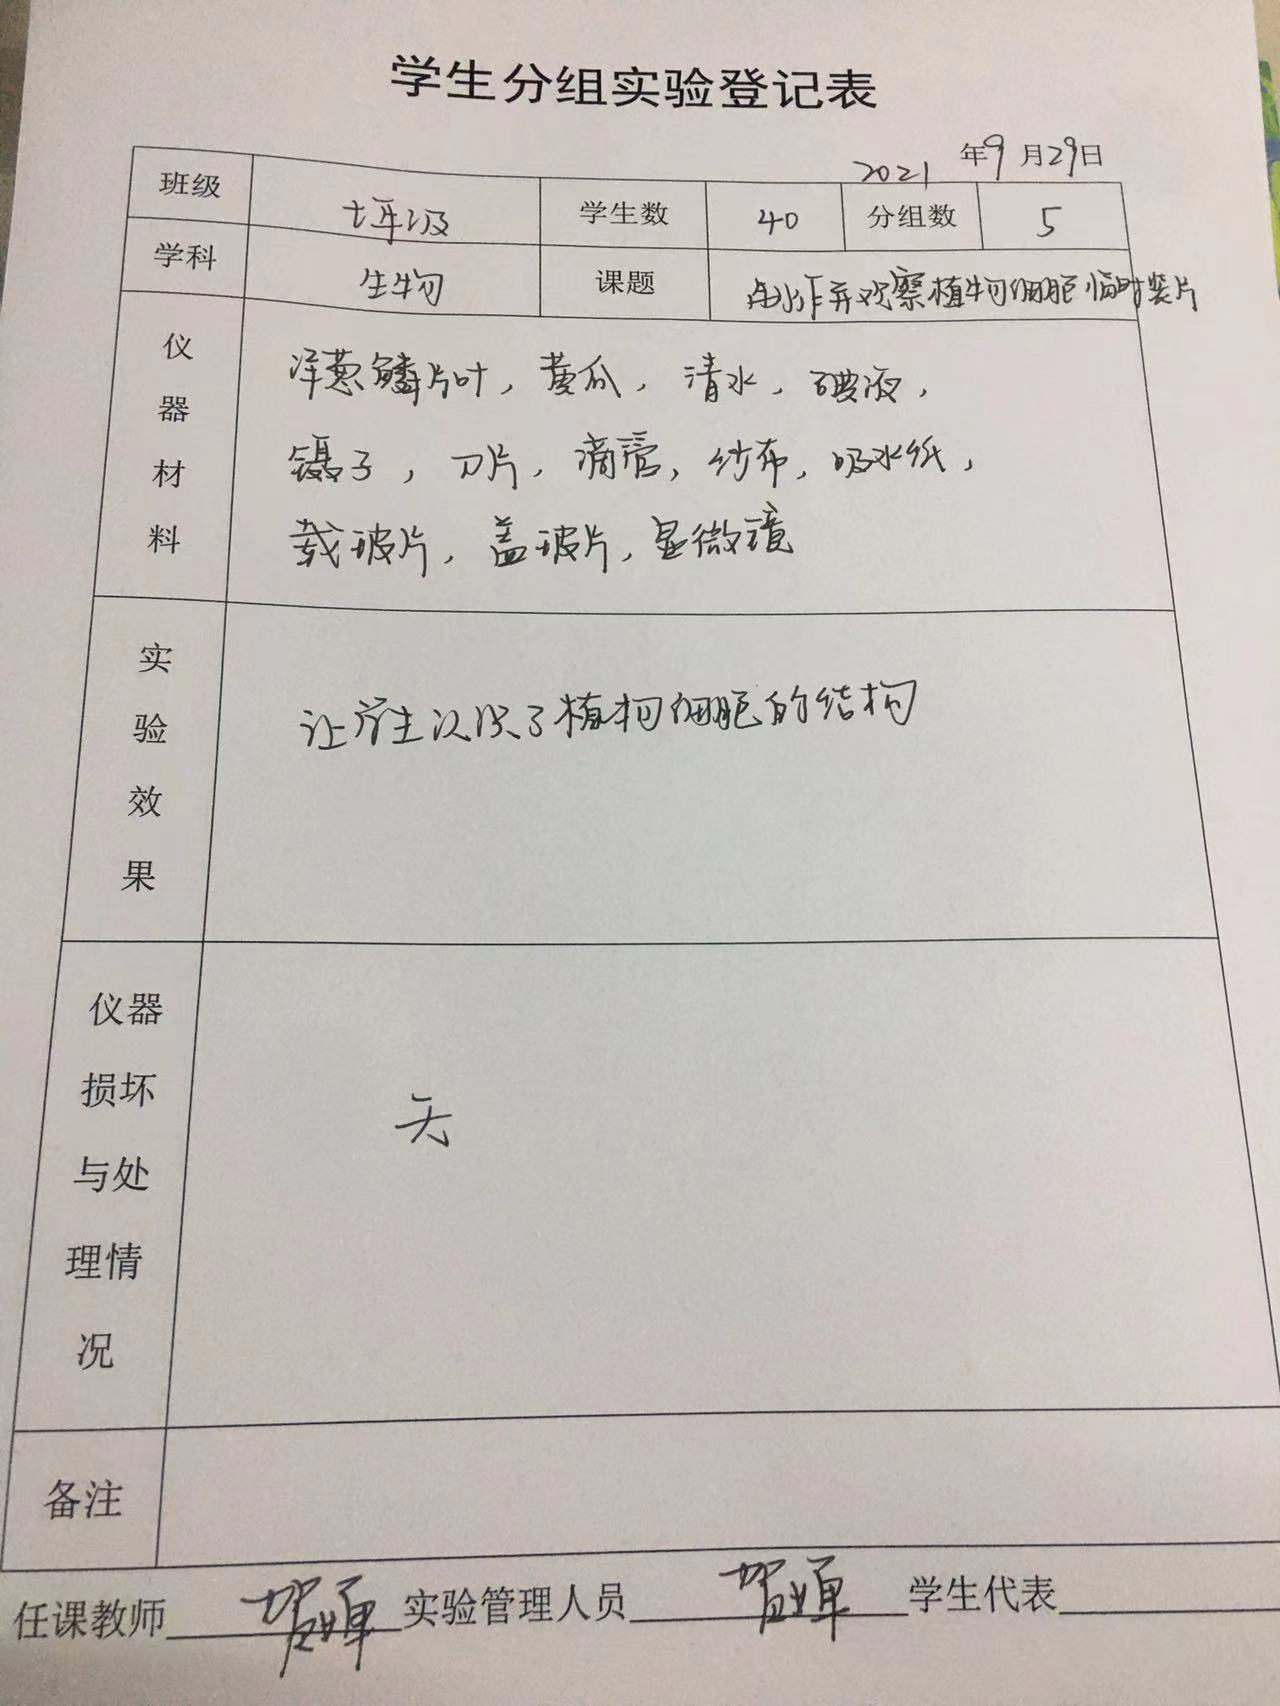 学生分组实验登记表
2021年9月29日
班级 七年级 学生数 40 分组数 5
学科 生物 课题 制作并观察植物细胞临时装片
仪器材料
洋葱鳞片叶，黄瓜，清水，碘液，
镊子，刀片，滴管，纱布，吸水纸，
载玻片，盖玻片，显微镜
实验效果
让学生认识了植物细胞的结构
仪器损坏与处理情况
无
备注
任课教师 实验管理人员 学生代表